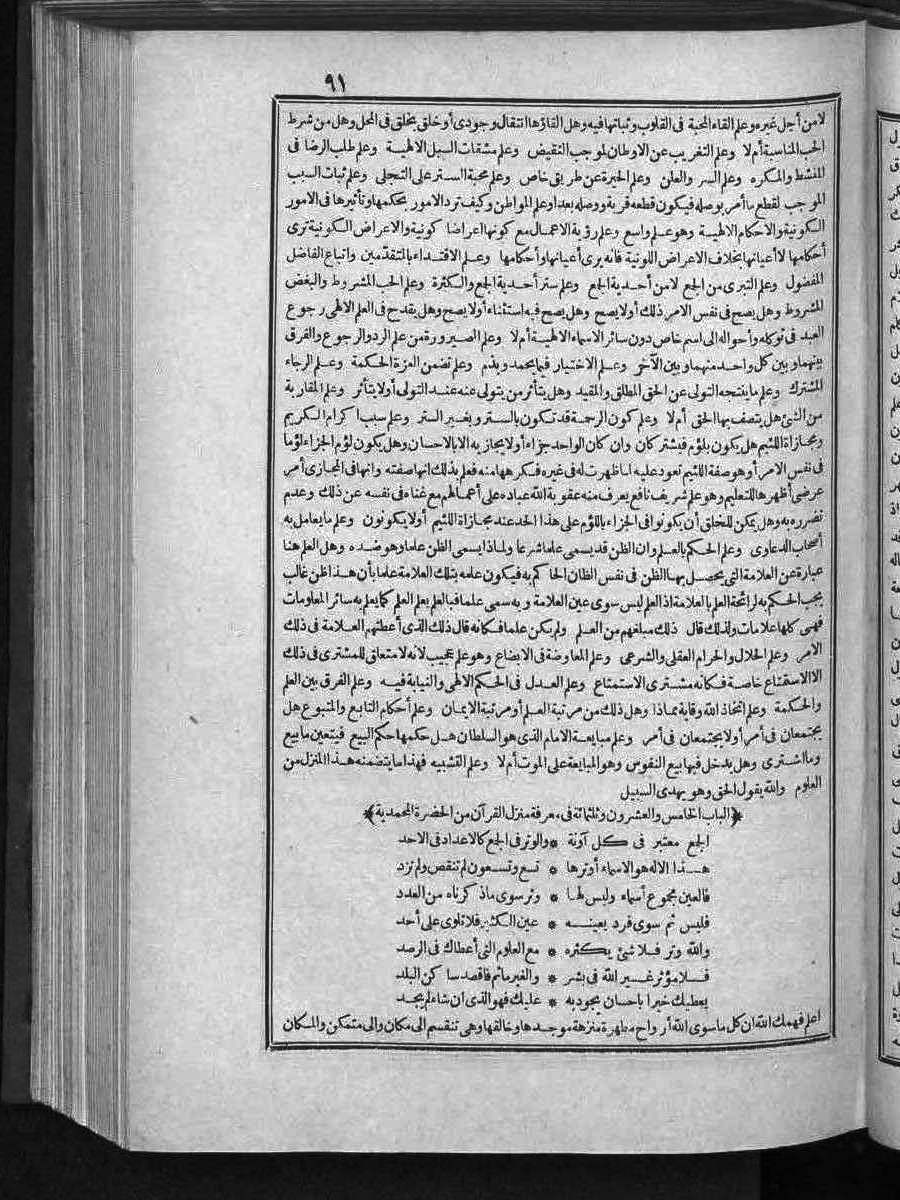 ٩١
لا من أجل غيره وعلم القاء المحبة فى القلوب وثباتها فيه وهل القاؤها انتقال وجودى أو خلق يخلق فى المحل وهل من شرط
الحب المناسبة أم لا وعلم التغريب عن الاوطان لموجب النقيض وعلم مشقات السبل الالهية وعلم طلب الرضا فى
المنشط والمكره وعلم السر والعلن وعلم الحيرة عن طريق خاص وعلم محبة الستر على التجلى وعلم ثبات السبب
الموجب لقطع ما أمر بوصله فيكون قطعه قربة ووصله بعدا وعلم المواطن وكيف ترد الامور بحكمها وتأثيرها فى الامور
الكونية والاحكام الالهية وهو علم واسع وعلم رؤية الاعمال مع كونها اعراضا كونية والاعراض الكونية ترى
أحكامها لا أعيانها بخلاف الاعراض اللونية فانه يرى أعيانها وأحكامها وعلم الاقتداء بالمتقدّمين واتباع الفاضل
المفضول وعلم التبرى من الجع لا من أحدية الجع وعلم ستر أحدية الجع والكثرة وعلم الحب المشروط والبغض
المشروط وهل يصح فى نفس الامر ذلك أو لا يصح وهل يصح فيه استثناء أو لا يصح وهل يقدح فى العلم الالهى رجوع
العبد فى توكله وأحواله الى اسم خاص دون سائر الاسماء الالهية أم لا وعلم الصيرورة من علم الرد والرجوع والفرق
بينهما وبين كل واحد منهما وبين الآخر وعلم الاختيار فيما يحمد ويذم وعلم تضمن العزة الحكمة وعلم الرجاء
المشترك وعلم ما ينتجه التولى عن الحق المطلق والمقيد وهل يتأثر من يتولى عنه عند التولى أو لا يتأثر وعلم المقاربة
من الشئ هل يتصف بها الحق أم لا وعلم كون الرحمة قد تكون بالستر وبغير الستر وعلم سبب اكرام الكريم
ومجازاة اللئيم هل يكون بلؤم فيشتركان وان كان الواحد جزاء أو لا يجازيه الا بالاحسان وهل يكون لؤم الجزاء لؤما
فى نفس الامر أو هو صفة اللئيم تعود عليه لما ظهرت له فى غيره فكرهها منه فعلم بذلك انها صفته وانها فى المجازى أمر
عرضى أظهرها للتعليم وهو علم شريف نافع يعرف منه عقوبة الله عباده على أعمالهم مع غناه فى نفسه عن ذلك وعدم
تضرره به وهل يمكن للخلق أن يكونوا فى الجزاء باللؤم على هذا الحد عند مجازاة اللئيم أو لا يكونون وعلم ما يعامل به
أصحاب الدعاوى وعلم الحكم بالعلم وان الظن قد يسمى علما شرعا ولماذا يسمى الظن علما وهو ضده وهل العلم هنا
عبارة عن العلامة التى يحصل بها الظن فى نفس الظان الحاكم به فيكون علمه بتلك العلامة علما بأن هذا ظن غالب
يجب الحكم به لرائحة العلم بالعلامة اذ العلم ليس سوى عين العلامة وبه سمى علما فبالعلم يعلم العلم كما يعلم به سائر المعلومات
فهى كلها علامات ولذلك قال ذلك مبلغهم من العلم ولم يكن علما فكانه قال ذلك الذى أعطتهم العلامة فى ذلك
الامر وعلم الحلال والحرام العقلى والشرعى وعلم المعاوضة فى الابضاع وهو علم عجيب لانه لا متعلق للمشترى فى ذلك
الا الاستمتاع خاصة فكانه مشترى الاستمتاع وعلم العدل فى الحكم الالهى والنيابة فيه وعلم الفرق بين العلم
والحكمة وعلم اتخاذ الله وقاية مماذا وهل ذلك من مرتبة العلم أو مرتبة الايمان وعلم أحكام التابع والمتبوع هل
يجتمعان فى أمر أو لا يجتمعان فى أمر وعلم مبايعة الامام الذى هو السلطان هل حكمها حكم البيع فيتعين ما بيع
وما اشترى وهل يدخل فيها بيع النفوس وهو المبايعة على الموت أم لا وعلم التشبيه فهذا ما يتضمنه هذا المنزل من
العلوم والله يقول الحق وهو يهدى السبيل
﴿الباب الخامس والعشرون وثلثمائة فى معرفة منزل القرآن من الحضرة المحمدية﴾
الجع معتبر فى كل آونة * والوتر فى الجع كالاعداد فى الاحد
هذا الاله هو الاسماء أوترها * تسع وتسعون لم تنقص ولم تزد
فالعين مجموع أسماء وليس لها * وتر سوى ماذكرناه من العدد
فليس ثم سوى فرد يعينه * عين الكثير فلا تلوى على أحد
والله وتر فلا شئ يكثره * مع العلوم التى أعطاك فى الرصد
فلا مؤثر غير الله فى بشر * والغير ما ثم فاقصد ساكن البلد
يعطيك خيرا باحسان يجود به * عليك فهو الذى ان شاء لم يجد
اعلم فهمك الله ان كل ما سوى الله أرواح مطهرة منزهة موجدها وخالقها وهى تنقسم الى مكان والى متمكن والمكان